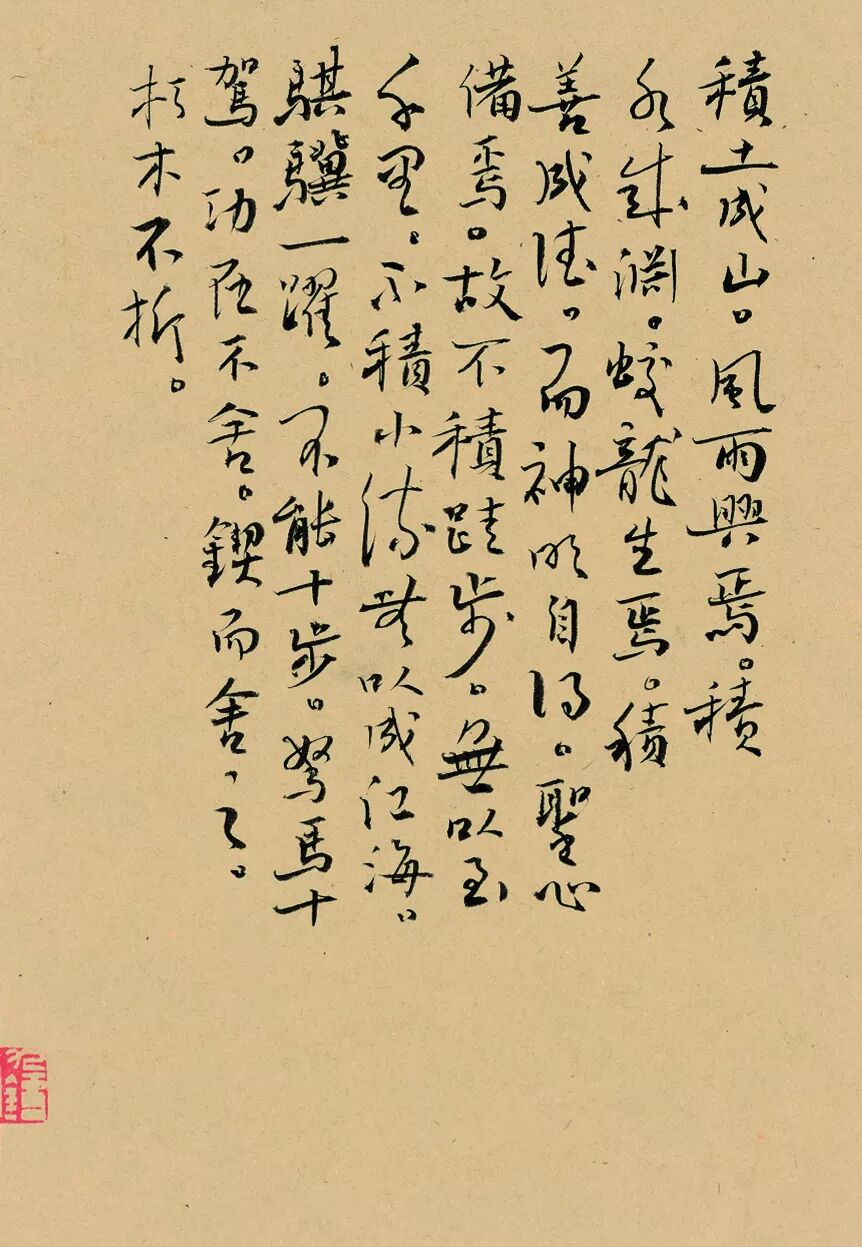 積土成山。風雨興焉。積
水成淵。蛟龍生焉。積
善成德。而神明自得。聖心
備焉。故不積蹞步。無以至
千里。不積小流無以成江海。
騏驥一躍。不能十步。駑馬十
駕。功在不舍。鍥而舍之。
朽木不折。